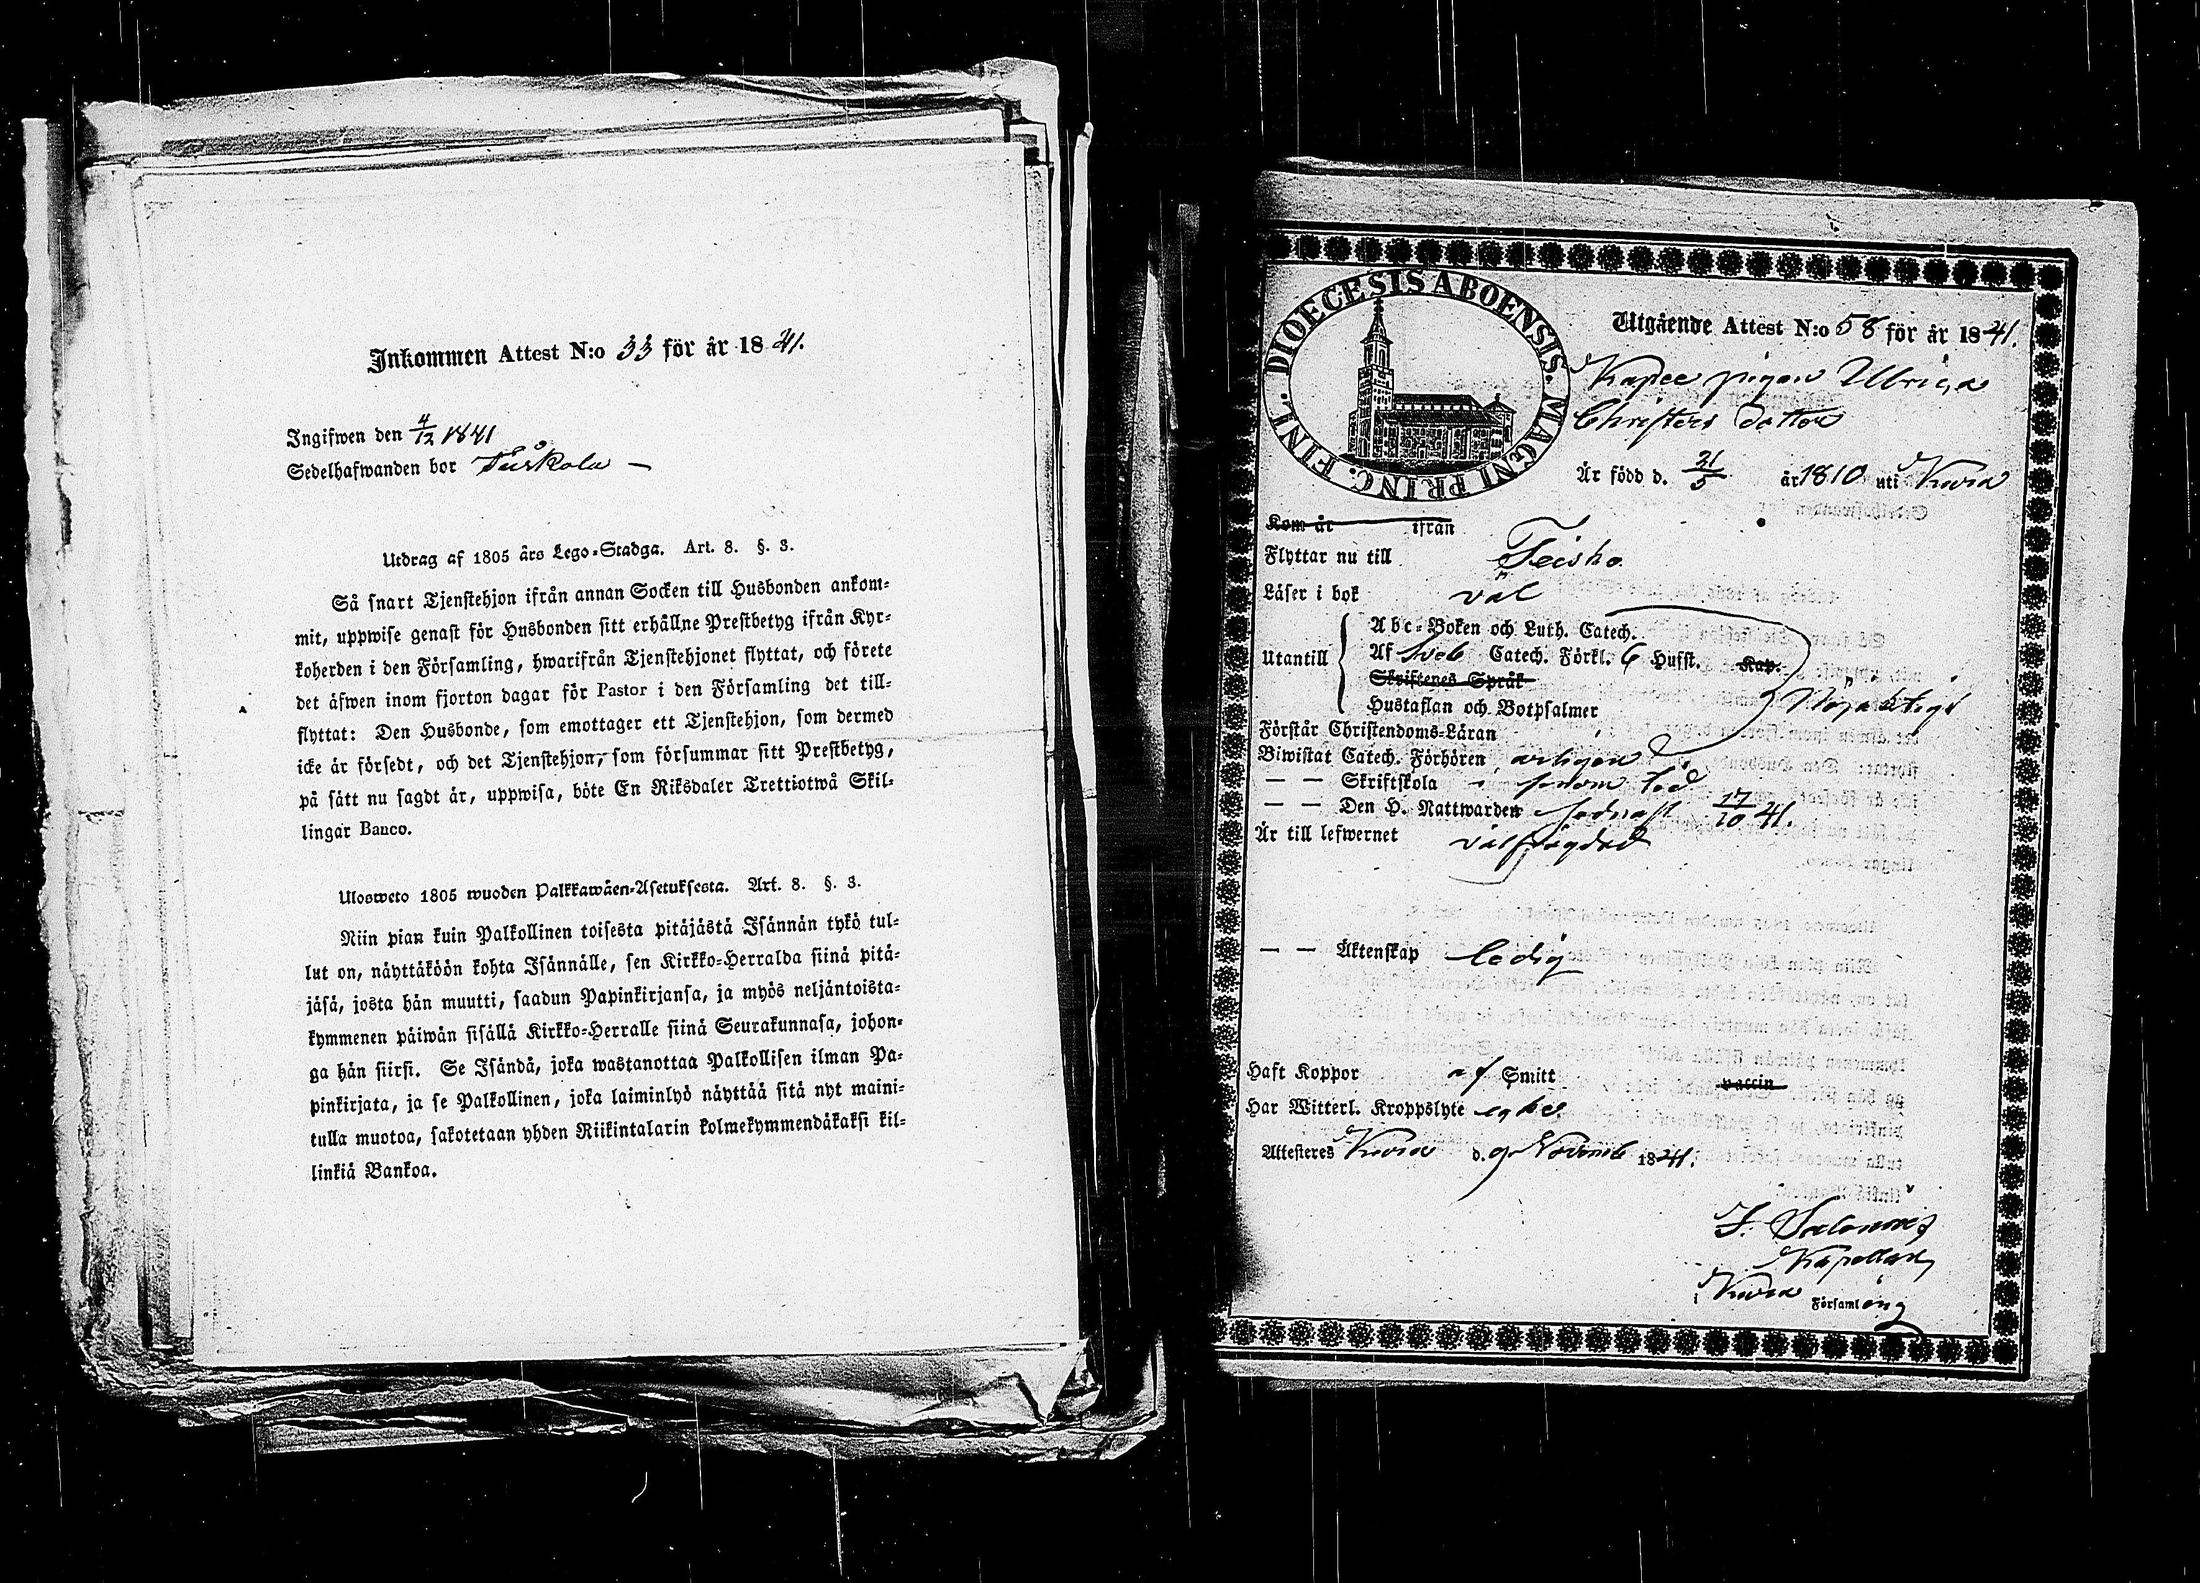 Inkommen Attest N:o 33 för år 1841.
Ingifwen den 4/12 1841
Sedelhafwanden bor
Utdrag af 1805 års Lego-Stadga. Art. 8. §. 3.
Så snart Tjenstehjon ifrån annan Socken till Husbonden ankom-
mit, uppwise genast för Husbonden sitt erhållne Prestbetyg ifrån Kyr-
koherden i den Församling, hwarifrån Tjenstehjonet flyttat, och förete
det äfwen inom fjorton dagar för Pastor i den Församling det till-
flyttat: Den Husbonde, som emottager ett Tjenstehjon, som dermed
icke är försedt, och det Tjenstehjon, som försummar sitt Prestbetyg,
på sätt nu sagdt är, uppwisa, böte En Riksdaler Trettiotwå Skil-
lingar Banco.
Ulosweto 1805 wuoden Palkkawäen-Asetuksesta. Art. 8. §. 3.
Niin pian kuin Palkollinen toisesta pitäjästä Isännän tykö tul-
lut on, näyttäköön kohta Isännälle, sen Kirkko-Herralda siinä pitä-
jäsä, josta hän muutti, saadun Papinkirjansa, ja myös neljäntoista-
kymmenen päiwän sisällä Kirkko-Herralle siinä Seurakunnasa, johon-
ga hän siirsi. Se Isändä, joka wastanottaa Palkollisen ilman Pa-
pinkirjata, ja se Palkollinen, joka laiminlyö näyttää sitä nyt maini-
tulla muotoa, sakotetaan yhden Riikintalarin kolmekymmendäkaksi kil-
linkiä Bankoa.
DIOECESIS ABOENSIS. MAGNI PRINC. FINL.
Utgående Attest N:o 58 för år 1841.
pigan Ulrica
Christers dotter
Är född d. 21/5 år 1810 uti Kuru
Kom år ifrån
Flyttar nu till Teisko
Läser i bok väl
Utantill
Abc-Boken och Luth. Catech.
Af Sveb Catech. Förkl. 6 Hufst. Kap.
Skriftenes Språk
Hustaflan och Botpsalmer Nöjaktigt
Förstår Christendoms-Läran
Biwistat Catech. Förhören årligen
— — Skriftskola
— — Den H. Nattwarden sednast 17/10 41.
Är till lefwernet välfrägdad
— — Äktenskap ledig
Haft Koppor af Smitt vaccin
Har Witterl. Kroppslyte
Attesteres Kuru d. 9 Novemb 1841.
Kapellan
i Kuru Församling